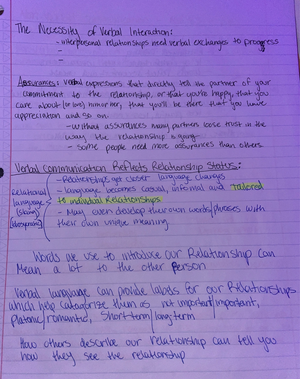 The Necessity of Verbal Interaction:
- interpersonal relationships need verbal exchanges to progress
-
Assurances: verbal expressions that directly tell the partner of your
commitment to the relationship, or that you're happy, that you
care about (or love) him or her, that you'll be there that you have
appreciation and so on.
- without assurances many partners loose trust in the
way the relationship is going
- Some people need more assurances than others.
Verbal communication Reflects Relationship Status:
- Relationships get closer language changes
Relational
language
(slang)
- language becomes casual, informal and tailored
to individual Relationships
- May even develop their own words/phrases with
their own unique meaning.
Words we use to introduce our Relationship can
Mean a lot to the other person
Verbal language can provide labels for our Relationships
which help categorize them as not important/important,
platonic/romantic, short term/long term
How others describe our relationship can tell you
how they see the relationship